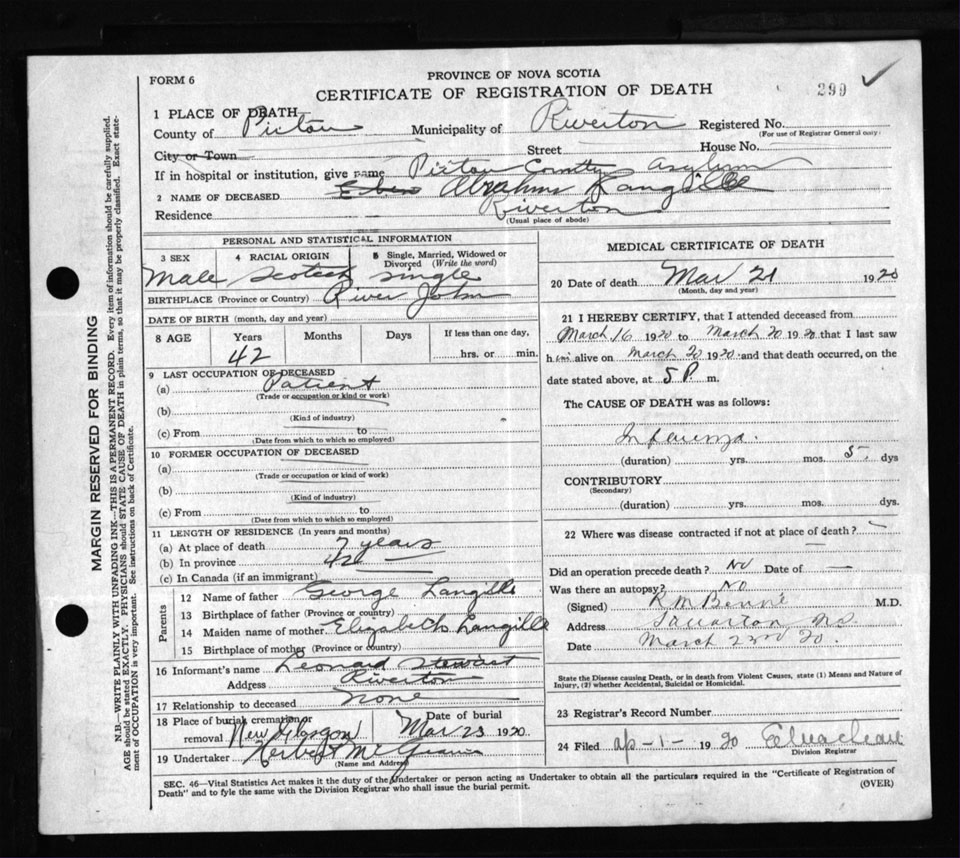 PROVINCE OF NOVA SCOTIA
FORM 6
CERTIFICATE OF REGISTRATION OF DEATH
299
1 PLACE OF DEATH—
County of Pictou Municipality of Riverton Registered No.
(For use of Registrar General only)
City or Town Street House No.
If in hospital or institution, give name Pictou County Asylum
2 NAME OF DECEASED Abrahm Langille
Residence Riverton
(Usual place of abode)
PERSONAL AND STATISTICAL INFORMATION
3 SEX 4 RACIAL ORIGIN 5 Single, Married, Widowed or Divorced (Write the word)
Male Scotch Single
BIRTHPLACE (Province or Country) River John
DATE OF BIRTH (month, day and year)
8 AGE Years Months Days If less than one day,
42 hrs. or min.
9 LAST OCCUPATION OF DECEASED
(a) Patient
(Trade or occupation or kind or work)
(b)
(Kind of industry)
(c) From to
(Date from which to which so employed)
10 FORMER OCCUPATION OF DECEASED
(a)
(Trade or occupation or kind of work)
(b)
(Kind of industry)
(c) From to
(Date from which to which so employed)
11 LENGTH OF RESIDENCE (In years and months)
(a) At place of death 7 years
(b) In province 42
(c) In Canada (if an immigrant)
Parents
12 Name of father George Langille
13 Birthplace of father (Province or country)
14 Maiden name of mother Elizabeth Langille
15 Birthplace of mother (Province or country)
16 Informant's name Leonard Stewart
Address Riverton
17 Relationship to deceased None
18 Place of burial cremation or removal New Glasgow Date of burial Mar 23 1920.
19 Undertaker Herbert
(Name and Address)
MEDICAL CERTIFICATE OF DEATH
20 Date of death Mar 21 1920
(Month, day and year)
21 I HEREBY CERTIFY, that I attended deceased from
March 16 1920 to March 20 1920 that I last saw
him alive on March 20 1920 and that death occurred, on the
date stated above, at 5 P. m.
The CAUSE OF DEATH was as follows:
Influenza.
(duration) yrs. mos. 5 dys
CONTRIBUTORY
(Secondary)
(duration) yrs. mos. dys.
22 Where was disease contracted if not at place of death? —
Did an operation precede death? No Date of —
Was there an autopsy? NO
(Signed) R M M.D.
Address N.S.
Date March 23rd 20
State the Disease causing Death, or in death from Violent Causes, state (1) Means and Nature of
Injury, (2) whether Accidental, Suicidal or Homicidal.
23 Registrar's Record Number
24 Filed Ap-1- 1920
Division Registrar
SEC. 46—Vital Statistics Act makes it the duty of the Undertaker or person acting as Undertaker to obtain all the particulars required in the "Certificate of Registration of
Death" and to fyle the same with the Division Registrar who shall issue the burial permit.
(OVER)
MARGIN RESERVED FOR BINDING
N.B.—WRITE PLAINLY WITH UNFADING INK—THIS IS A PERMANENT RECORD. Every item of information should be carefully supplied.
AGE should be stated EXACTLY. PHYSICIANS should STATE CAUSE OF DEATH in plain terms, so that it may be properly classified. Exact state-
ment of OCCUPATION is very important. See instructions on back of Certificate.